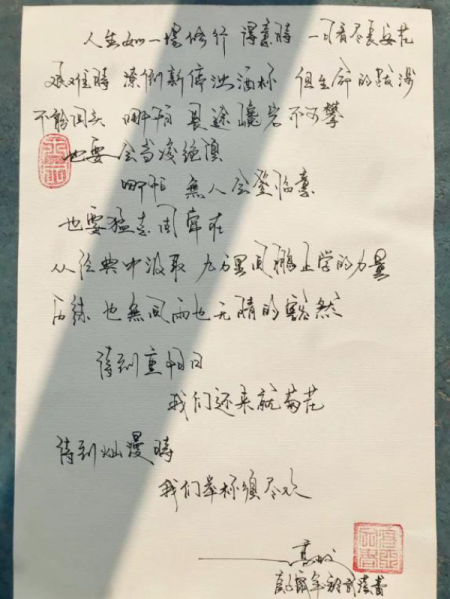 人生如一场修行 得意時 一日看尽長安花
艰难時 潦倒新停浊酒杯 但生命的跋涉
不能回头 哪怕 畏途巉岩不可攀
也要 会当凌绝顶
哪怕 無人会登临意
也要猛志固常在
从经典中汲取 九万里风鹏正举的力量
历练 也無风雨也无晴的豁然
待到重阳日
我们还来就菊花
待到灿漫時
我们举杯须尽欢